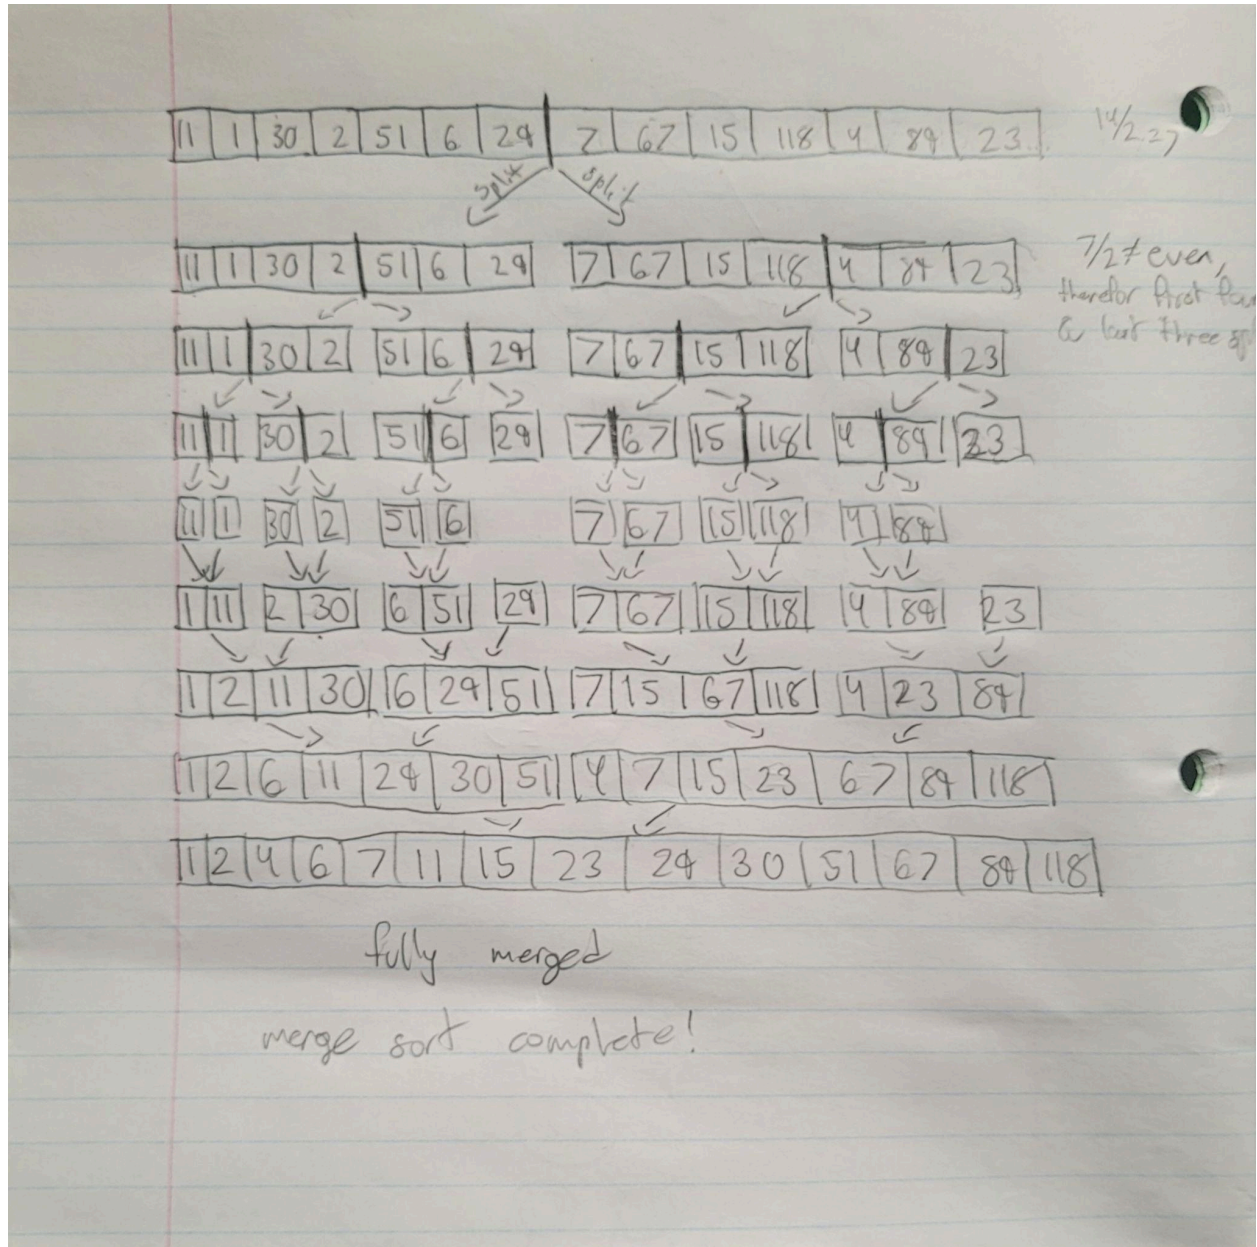 11 1 30 2 51 6 29 7 67 15 118 4 89 23 14/2=7
split split
11 1 30 2 51 6 29 7 67 15 118 4 89 23 7/2≠even,
therefor first
& last three
11 1 30 2 51 6 29 7 67 15 118 4 89 23
11 1 30 2 51 6 29 7 67 15 118 4 89 23
11 1 30 2 51 6 7 67 15 118 4 89
1 11 2 30 6 51 29 7 67 15 118 4 89 23
1 2 11 30 6 29 51 7 15 67 118 4 23 89
1 2 6 11 29 30 51 4 7 15 23 67 89 118
1 2 4 6 7 11 15 23 29 30 51 67 89 118
fully merged
merge sort complete!